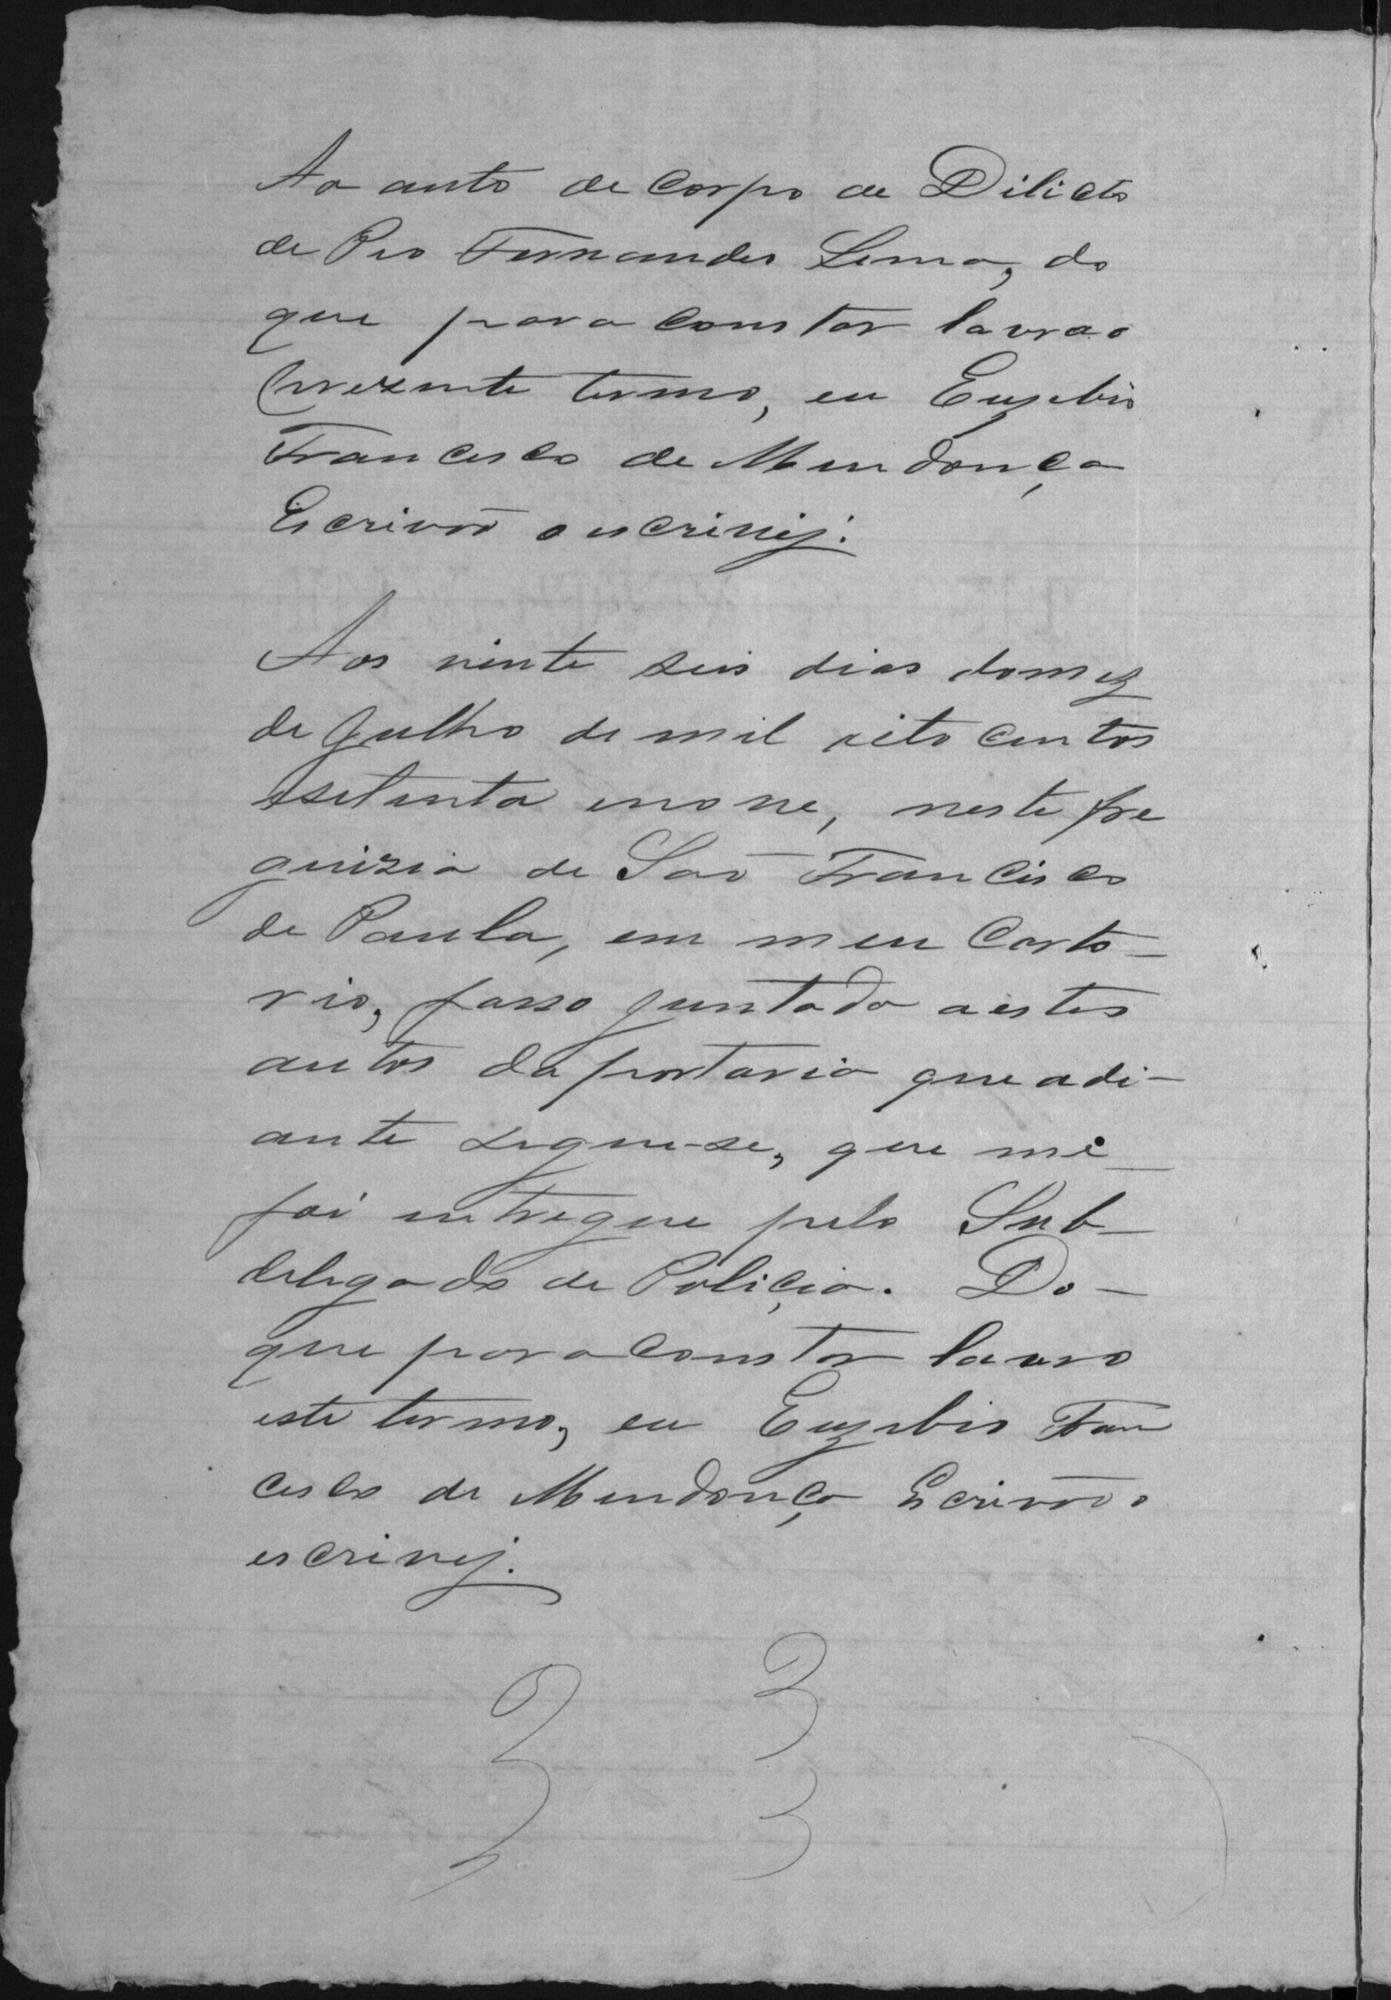 Ao auto de Corpo de Dilicto
de Pio Fernandes Lima, do
que para constar lavra o
prezente termo, eu Euzebio
Francisco de Mendonça
Escrivão o escrivij.
Aos vinte seis dias do mez
de Julho de mil oito centos
esetenta enove, neste fre
guizia de São Francisco
de Paula, em meu Carto-
rio, fasso juntada a estes
autos da portaria que adi-
ante segue-se, que me
foi entregue pelo Sub-
delegado de Poliçia. Do-
que para constar lavro
este termo, eu Euzebio Fran
cisco de Mendonça Escrivão o
escrivij.